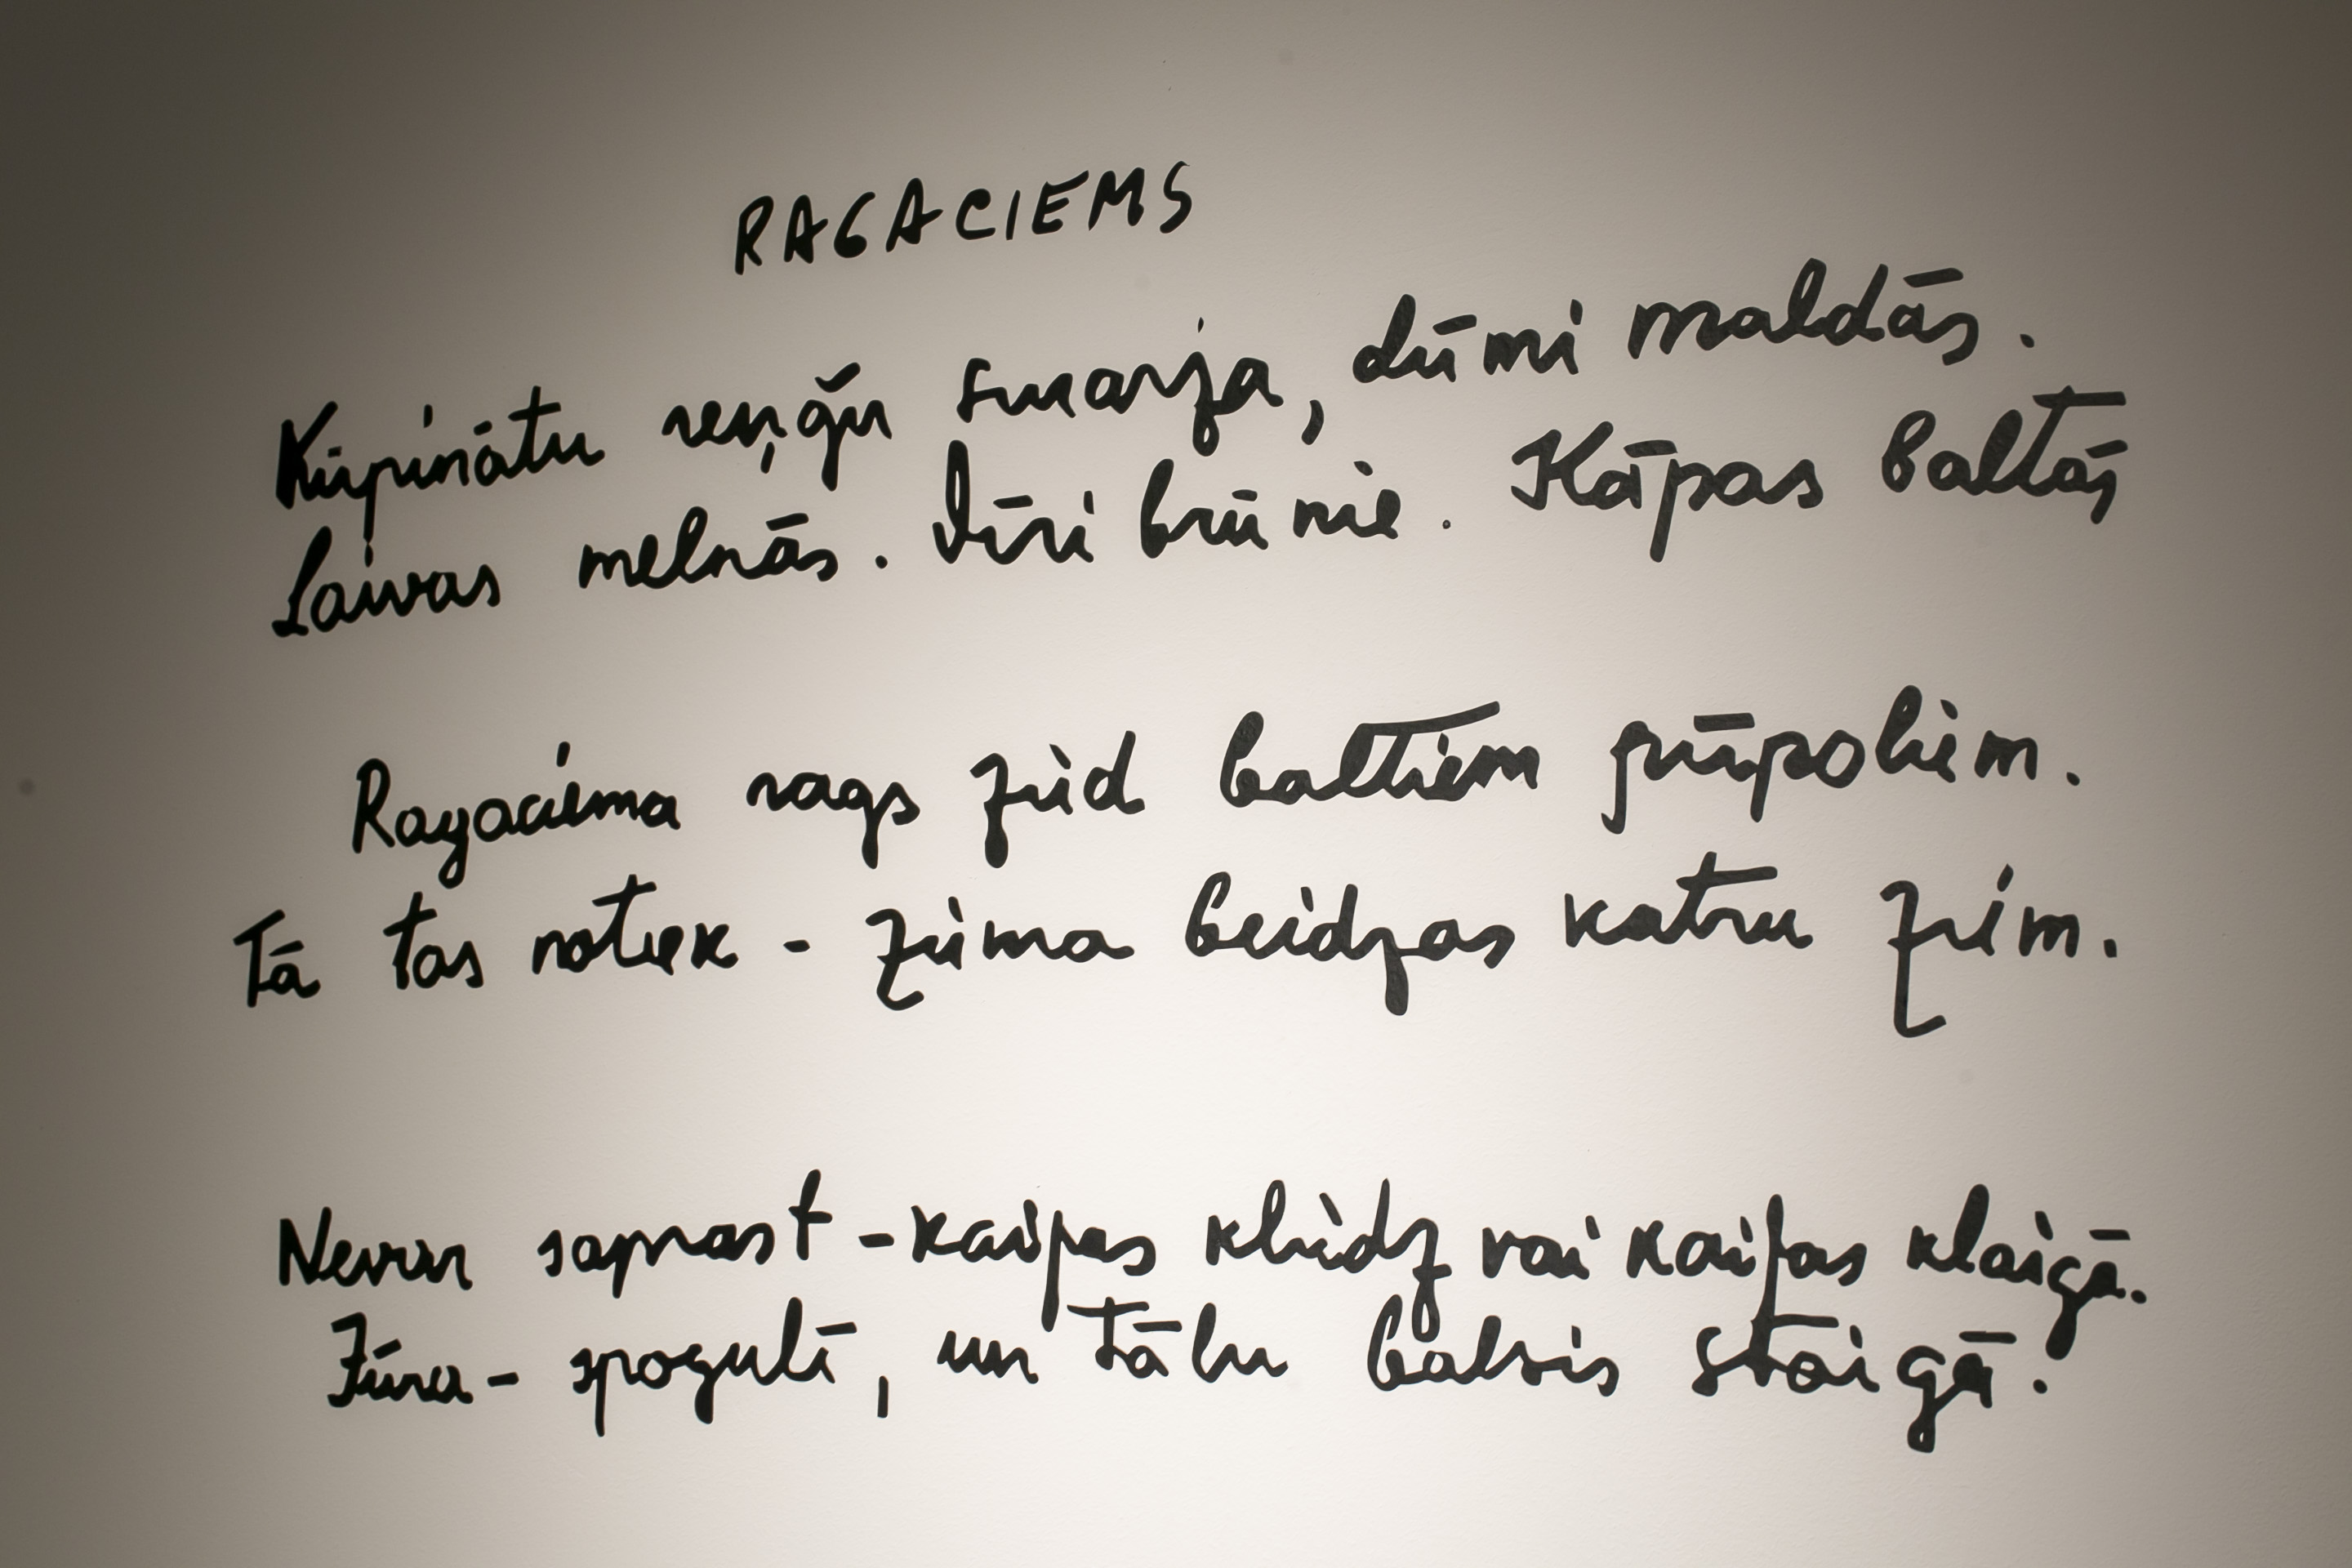 RAGACIEMS
Kūpinātu reņģu smarža, dūmi maldās.
Laivas melnās. Vīri brūnie. Kāpas baltās
Ragaciema rags zied baltiem pūpoliem.
Tā tas notiek - ziema beidzas katru ziem.
Nevar saprast - kaijas kliedz vai kaijas klaigā.
Jūra - spogulī, un tālu balsis staigā.